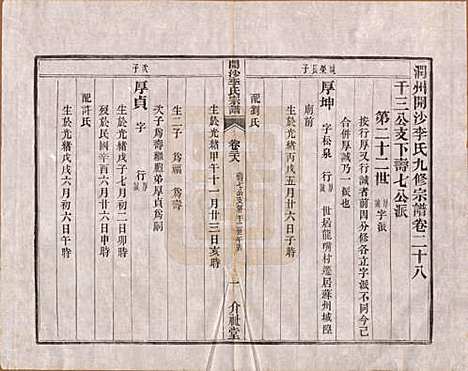 潤州開沙李氏九修宗譜卷二十八
千三公支下壽七公派
第二十二世
厚誠 字派
按行厚又行誠者前四分修各立字派今已
合併厚誠乃一派也
誠榮長子
厚坤 字松泉 行厚 世居龍嘴村遷居蘇州城隍
廟前
生於光緒丙戌五月廿六日子時
配劉氏
生於光緒甲午十一月廿三日亥時
開沙李氏宗譜
卷二十八
一 介祉堂
生二子 為福 為壽
次子為壽繼胞弟厚貞為嗣
次子
厚貞 字 行厚
生於光緒戊子七月初二日卯時
歿於民國辛酉六月廿六日午時
配許氏
生於光緒戊戌六月初六日午時